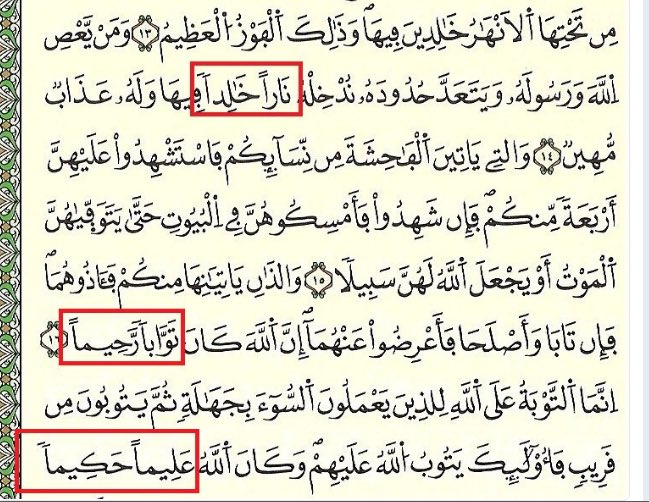 مِن تَحْتِهَا اَ۬لَانْهَٰرُ خَٰلِدِينَ فِيهَاۖ وَذَٰلِكَ اَ۬لْفَوْزُ اُ۬لْعَظِيمُۖ ١٣ وَمَنْ يَّعْصِ
اِ۬للَّهَ وَرَسُولَهُۥ وَيَتَعَدَّ حُدُودَهُۥ نُدْخِلْهُ نَاراً خَٰلِداٗ فِيهَا وَلَهُۥ عَذَابٌ
مُّهِينٌۖ ١٤ وَالتِے يَاتِينَ اَ۬لْفَٰحِشَةَ مِن نِّسَآئِكُمْ فَاسْتَشْهِدُواْ عَلَيْهِنَّ
أَرْبَعَةٗ مِّنكُمْۖ فَإِن شَهِدُواْ فَأَمْسِكُوهُنَّ فِے اِ۬لْبُيُوتِ حَتَّىٰ يَتَوَفّ۪يٰهُنَّ
اَ۬لْمَوْتُ أَوْ يَجْعَلَ اَ۬للَّهُ لَهُنَّ سَبِيلاٗۖ ١٥ وَالذَٰنِ يَاتِيَٰنِهَا مِنكُمْ فَـَٔاذُوهُمَاۖ
فَإِن تَابَا وَأَصْلَحَا فَأَعْرِضُواْ عَنْهُمَآۖ إِنَّ اَ۬للَّهَ كَانَ تَوَّاباٗ رَّحِيماًۖ ١٦
اِنَّمَا اَ۬لتَّوْبَةُ عَلَى اَ۬للَّهِ لِلذِينَ يَعْمَلُونَ اَ۬لسُّوٓءَ بِجَهَٰلَةٖ ثُمَّ يَتُوبُونَ مِن
قَرِيبٖ فَأُوْلَٰٓئِكَ يَتُوبُ اُ۬للَّهُ عَلَيْهِمْۖ وَكَانَ اَ۬للَّهُ عَلِيماً حَكِيماٗۖ